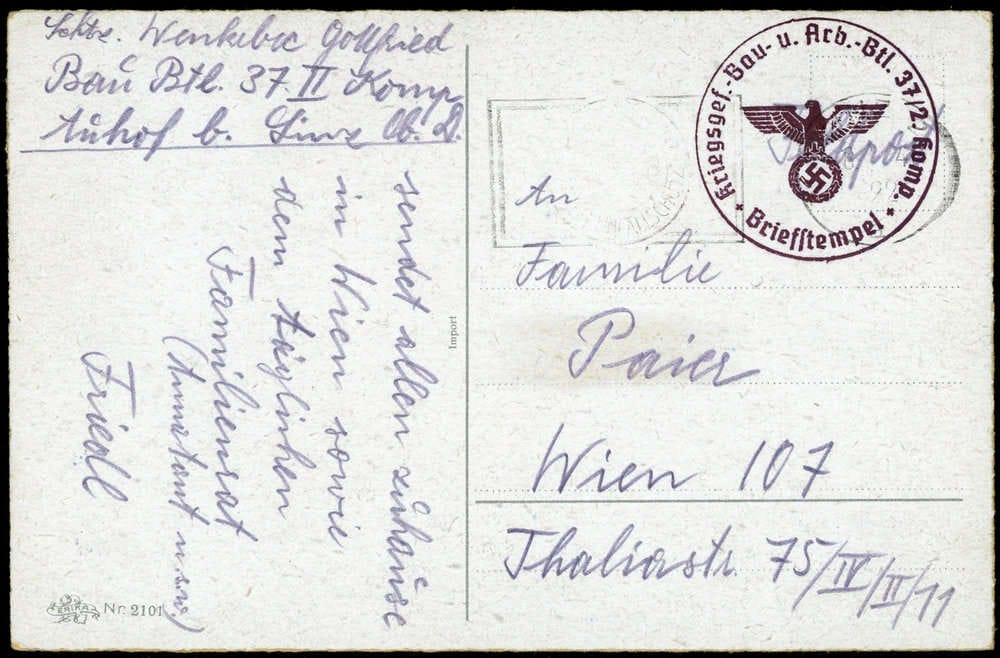 Schtz. Wenkebec Gottfried
Bau Btl. 37. II Komp
Auhof b. Linz Ob. D.
sendet allen zuhause
in Wien sowie
dem täglichen
Familienrat
u.s.w.)
Friedl
ERIKA
Nr. 2101
Import
Kriegsgef.-Bau- u. Arb.-Btl. 37/2. Komp.
* Briefstempel *
Feldpost
An
Familie
Paier
Wien 107
Thaliastr. 75/IV/II/11